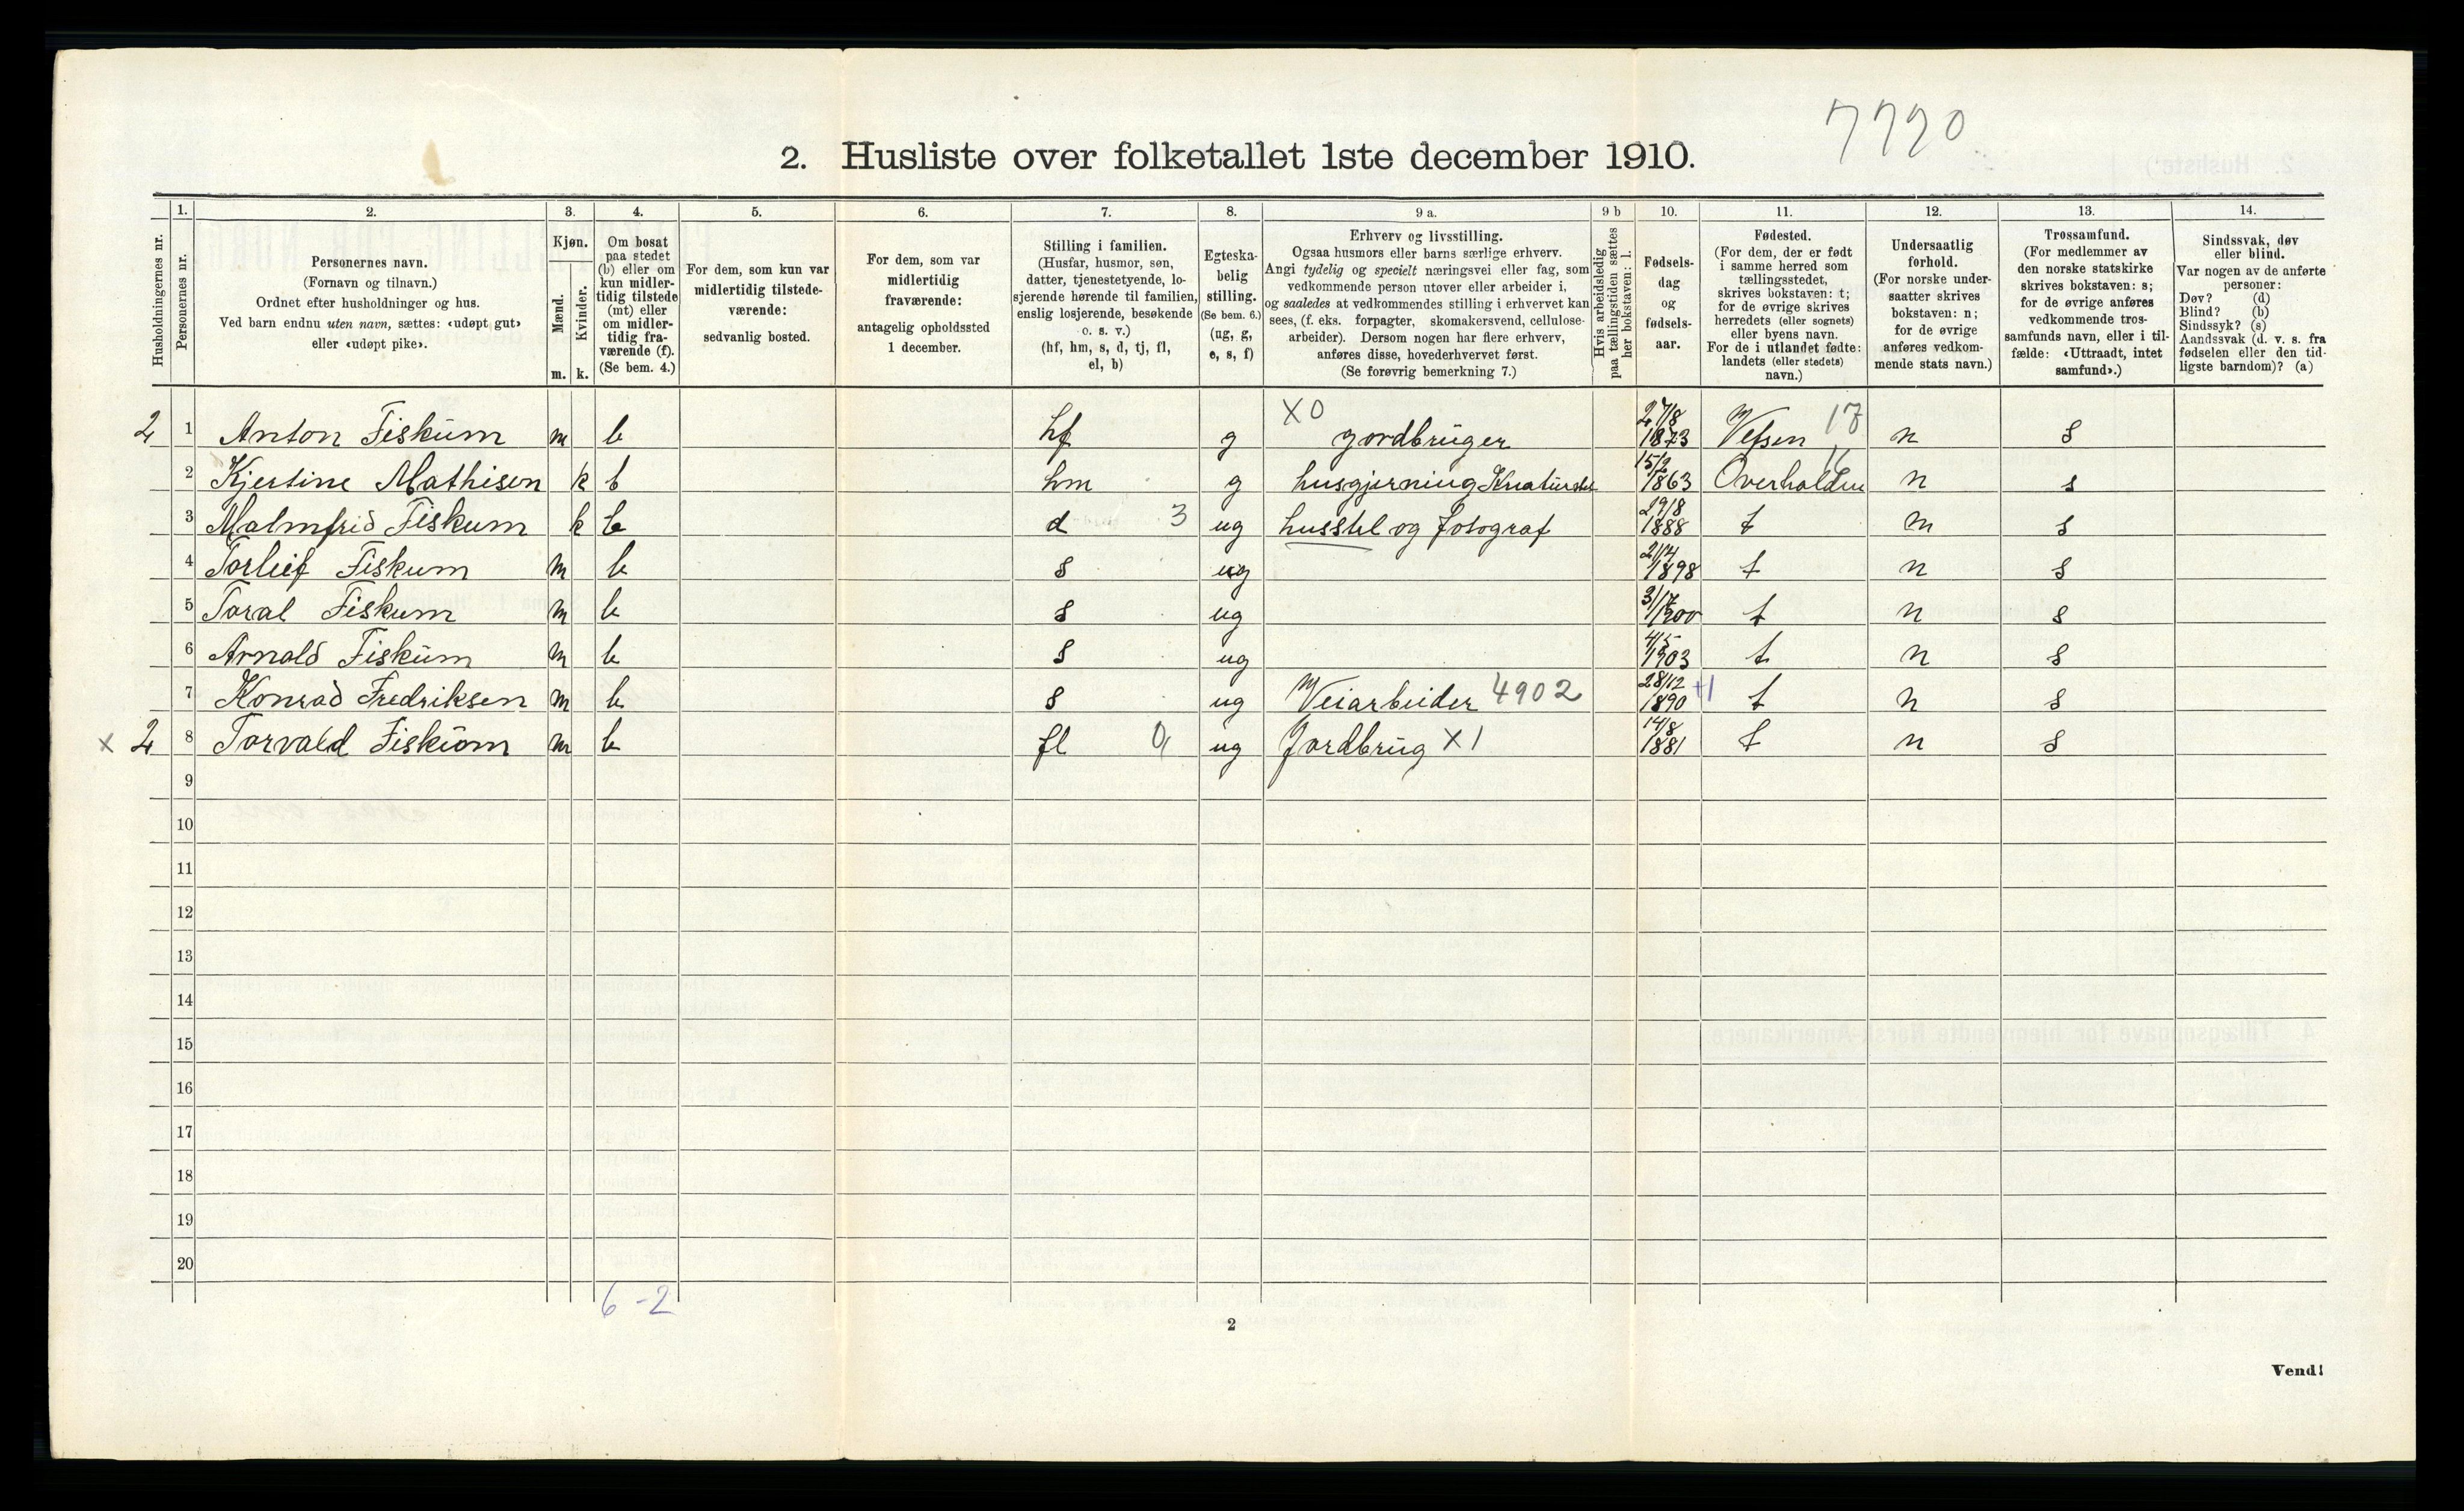 7790
2. Husliste over folketallet 1ste december 1910.
1. 2. 3. 4. 5. 6. 7. 8. 9 a. 9 b 10. 11. 12. 13. 14.
Husholdningernes nr.
Personernes nr.
Personernes navn.
(Fornavn og tilnavn.)
Ordnet efter husholdninger og hus.
Ved barn endnu uten navn, sættes: «udøpt gut»
eller «udøpt pike».
Kjøn.
Mænd.
Kvinder.
m. k.
Om bosat
paa stedet
(b) eller om
kun midler-
tidig tilstede
(mt) eller
om midler-
tidig fra-
værende (f).
(Se bem. 4.)
For dem, som kun var
midlertidig tilstede-
værende:
sedvanlig bosted.
For dem, som var
midlertidig
fraværende:
antagelig opholdssted
1 december.
Stilling i familien.
(Husfar, husmor, søn,
datter, tjenestetyende, lo-
sjerende hørende til familien,
enslig losjerende, besøkende
o. s. v.)
(hf, hm, s, d, tj, fl,
el, b)
Egteska-
belig
stilling.
(Se bem. 6.)
(ug, g,
e, s, f)
Erhverv og livsstilling.
Ogsaa husmors eller barns særlige erhverv.
Angi tydelig og specielt næringsvei eller fag, som
vedkommende person utøver eller arbeider i,
og saaledes at vedkommendes stilling i erhvervet kan
sees, (f. eks. forpagter, skomakersvend, cellulose-
arbeider). Dersom nogen har flere erhverv,
anføres disse, hovederhvervet først.
(Se forøvrig bemerkning 7.)
Hvis arbeidsledig
paa tællingstiden sættes
her bokstaven: l.
Fødsels-
dag
og
fødsels-
aar.
Fødested.
(For dem, der er født
i samme herred som
tællingsstedet,
skrives bokstaven: t;
for de øvrige skrives
herredets (eller sognets)
eller byens navn.
For de i utlandet fødte:
landets (eller stedets)
navn.)
Undersaatlig
forhold.
(For norske under-
saatter skrives
bokstaven: n;
for de øvrige
anføres vedkom-
mende stats navn.)
Trossamfund.
(For medlemmer av
den norske statskirke
skrives bokstaven: s;
for de øvrige anføres
vedkommende tros-
samfunds navn, eller i til-
fælde: «Uttraadt, intet
samfund».)
Sindssvak, døv
eller blind.
Var nogen av de anførte
personer:
Døv? (d)
Blind? (b)
Sindssyk? (s)
Aandssvak (d. v. s. fra
fødselen eller den tid-
ligste barndom)? (a)
2 1 Anton Fiskum m b hf g X0 gordbruger 27/8 1873 Vefsen 17 n s
2 Kjerstine Mathisen k b hm g husgjerning Kreaturstel 15/2 1863 Overhalden n s
3 Malmfrid Fiskum k b d 3 ug husstel og fotograf 29/8 1888 t n s
4 Torlief Fiskum m b s ug 1898 t n s
5 Toral Fiskum m b s ug 1900 t n s
6 Arnold Fiskum m b s ug 4/5 1903 t n s
7 Konrad Fredriksen m b s ug Veiarbeider 4902 28/12 1890 +1 t n s
x 2 8 Torvald Fiskum m b fl 0, ug Jordbrug X1 14/8 1881 t n s
9
10
11
12
13
14
15
16
17
18
19
20
6-2
2
Vend!